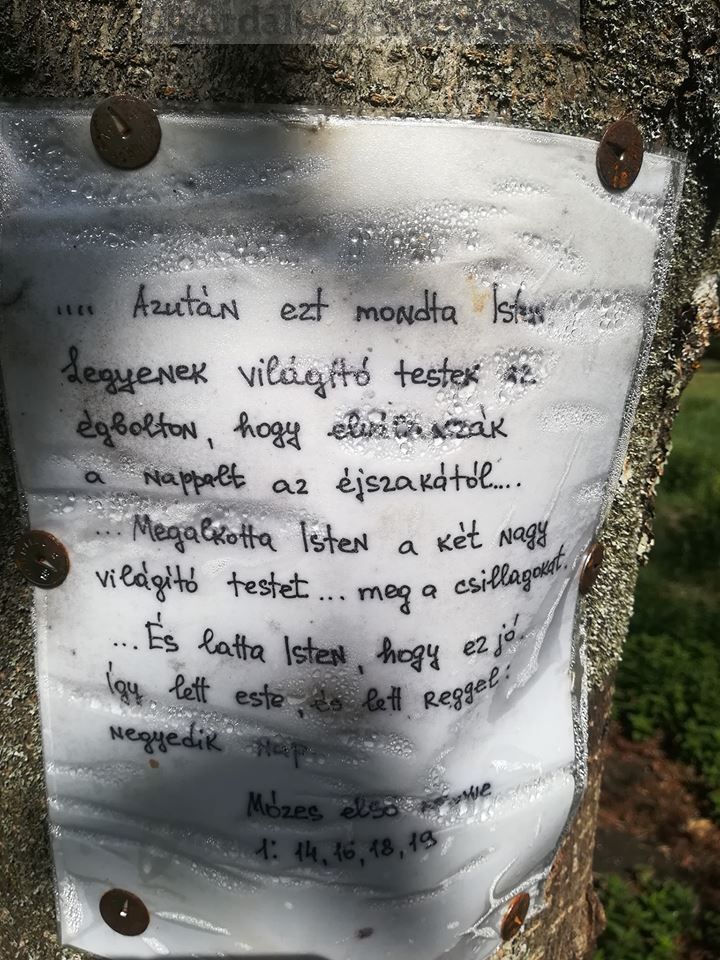 .... Azután ezt mondta Isten
Legyenek világító testek az
égbolton, hogy elválasszák
a nappalt az éjszakától....
... Megalkotta Isten a két nagy
világító testet... meg a csillagokat.
... És latta Isten, hogy ez jó.
Így lett este, és lett reggel:
negyedik nap.
Mózes első könyve
1: 14, 16, 18, 19